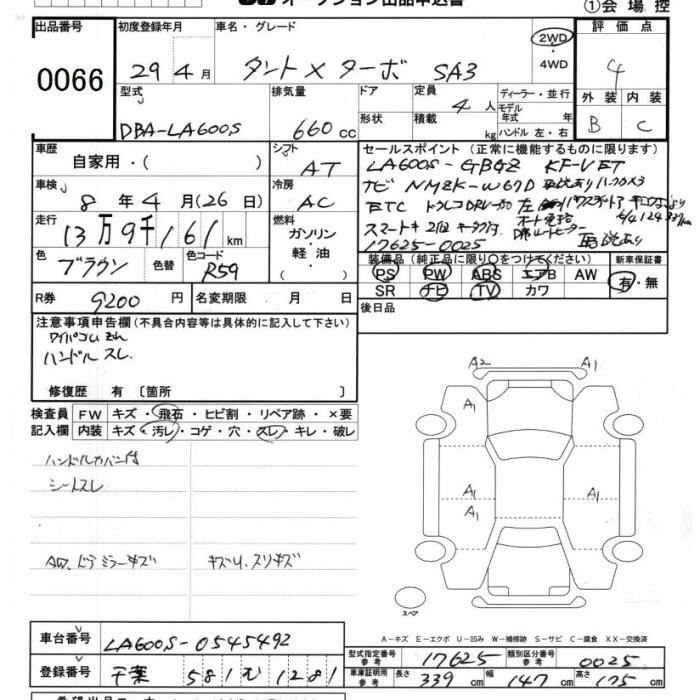 オークション出品申込書
①会場控
出品番号
0066
初度登録年月
29年4月
車名・グレード
タントXターボ SA3
2WD・4WD
評価点
4
外装 内装
B C
型式
DBA-LA600S
排気量
660cc
ドア
形状
定員
4人
積載 kg
ディーラー・並行
モデル年式 年式
ハンドル 左・右
車歴
自家用・( )
シフト
AT
車検
8年4月(26日)
冷房
AC
走行
13万9千161km
燃料
ガソリン・軽油・( )
色
ブラウン
色替
色コード
R59
R券 9200円
名変期限 月 日
セールスポイント(正常に機能するものに限ります)
LA600S-GBGZ KF-VET
ナビ NMZK-W67D
ETC ドラレコ
スマートキー2個
17625-0025
装備品(純正品に限り○をつけてください)
PS PW ABS エアB AW
SR ナビ TV カワ
新車保証書
有・無
後日品
注意事項申告欄(不具合内容等は具体的に記入して下さい)
ワイパゴム
ハンドル スレ
修復歴 有〔箇所 〕
検査員記入欄
FW キズ・飛石・ヒビ割・リペア跡・×要
内装 キズ・汚レ・コゲ・穴・スレ・キレ・破レ
ハンドルカバー付
シートスレ
AW、ドアミラーキズ
キズ凹、スリキズ
A2 A1
A1 A1
A1
A1 A1
スペア
A-キズ E-エクボ U-凹み W-補修跡 S-サビ C-腐食 XX-交換済
車台番号 LA600S-0545492
登録番号 千葉 581 む 1281
型式指定番号 参考 17625
類別区分番号 参考 0025
車庫証明用 参考 長さ 339cm 幅 147cm 高さ 175cm